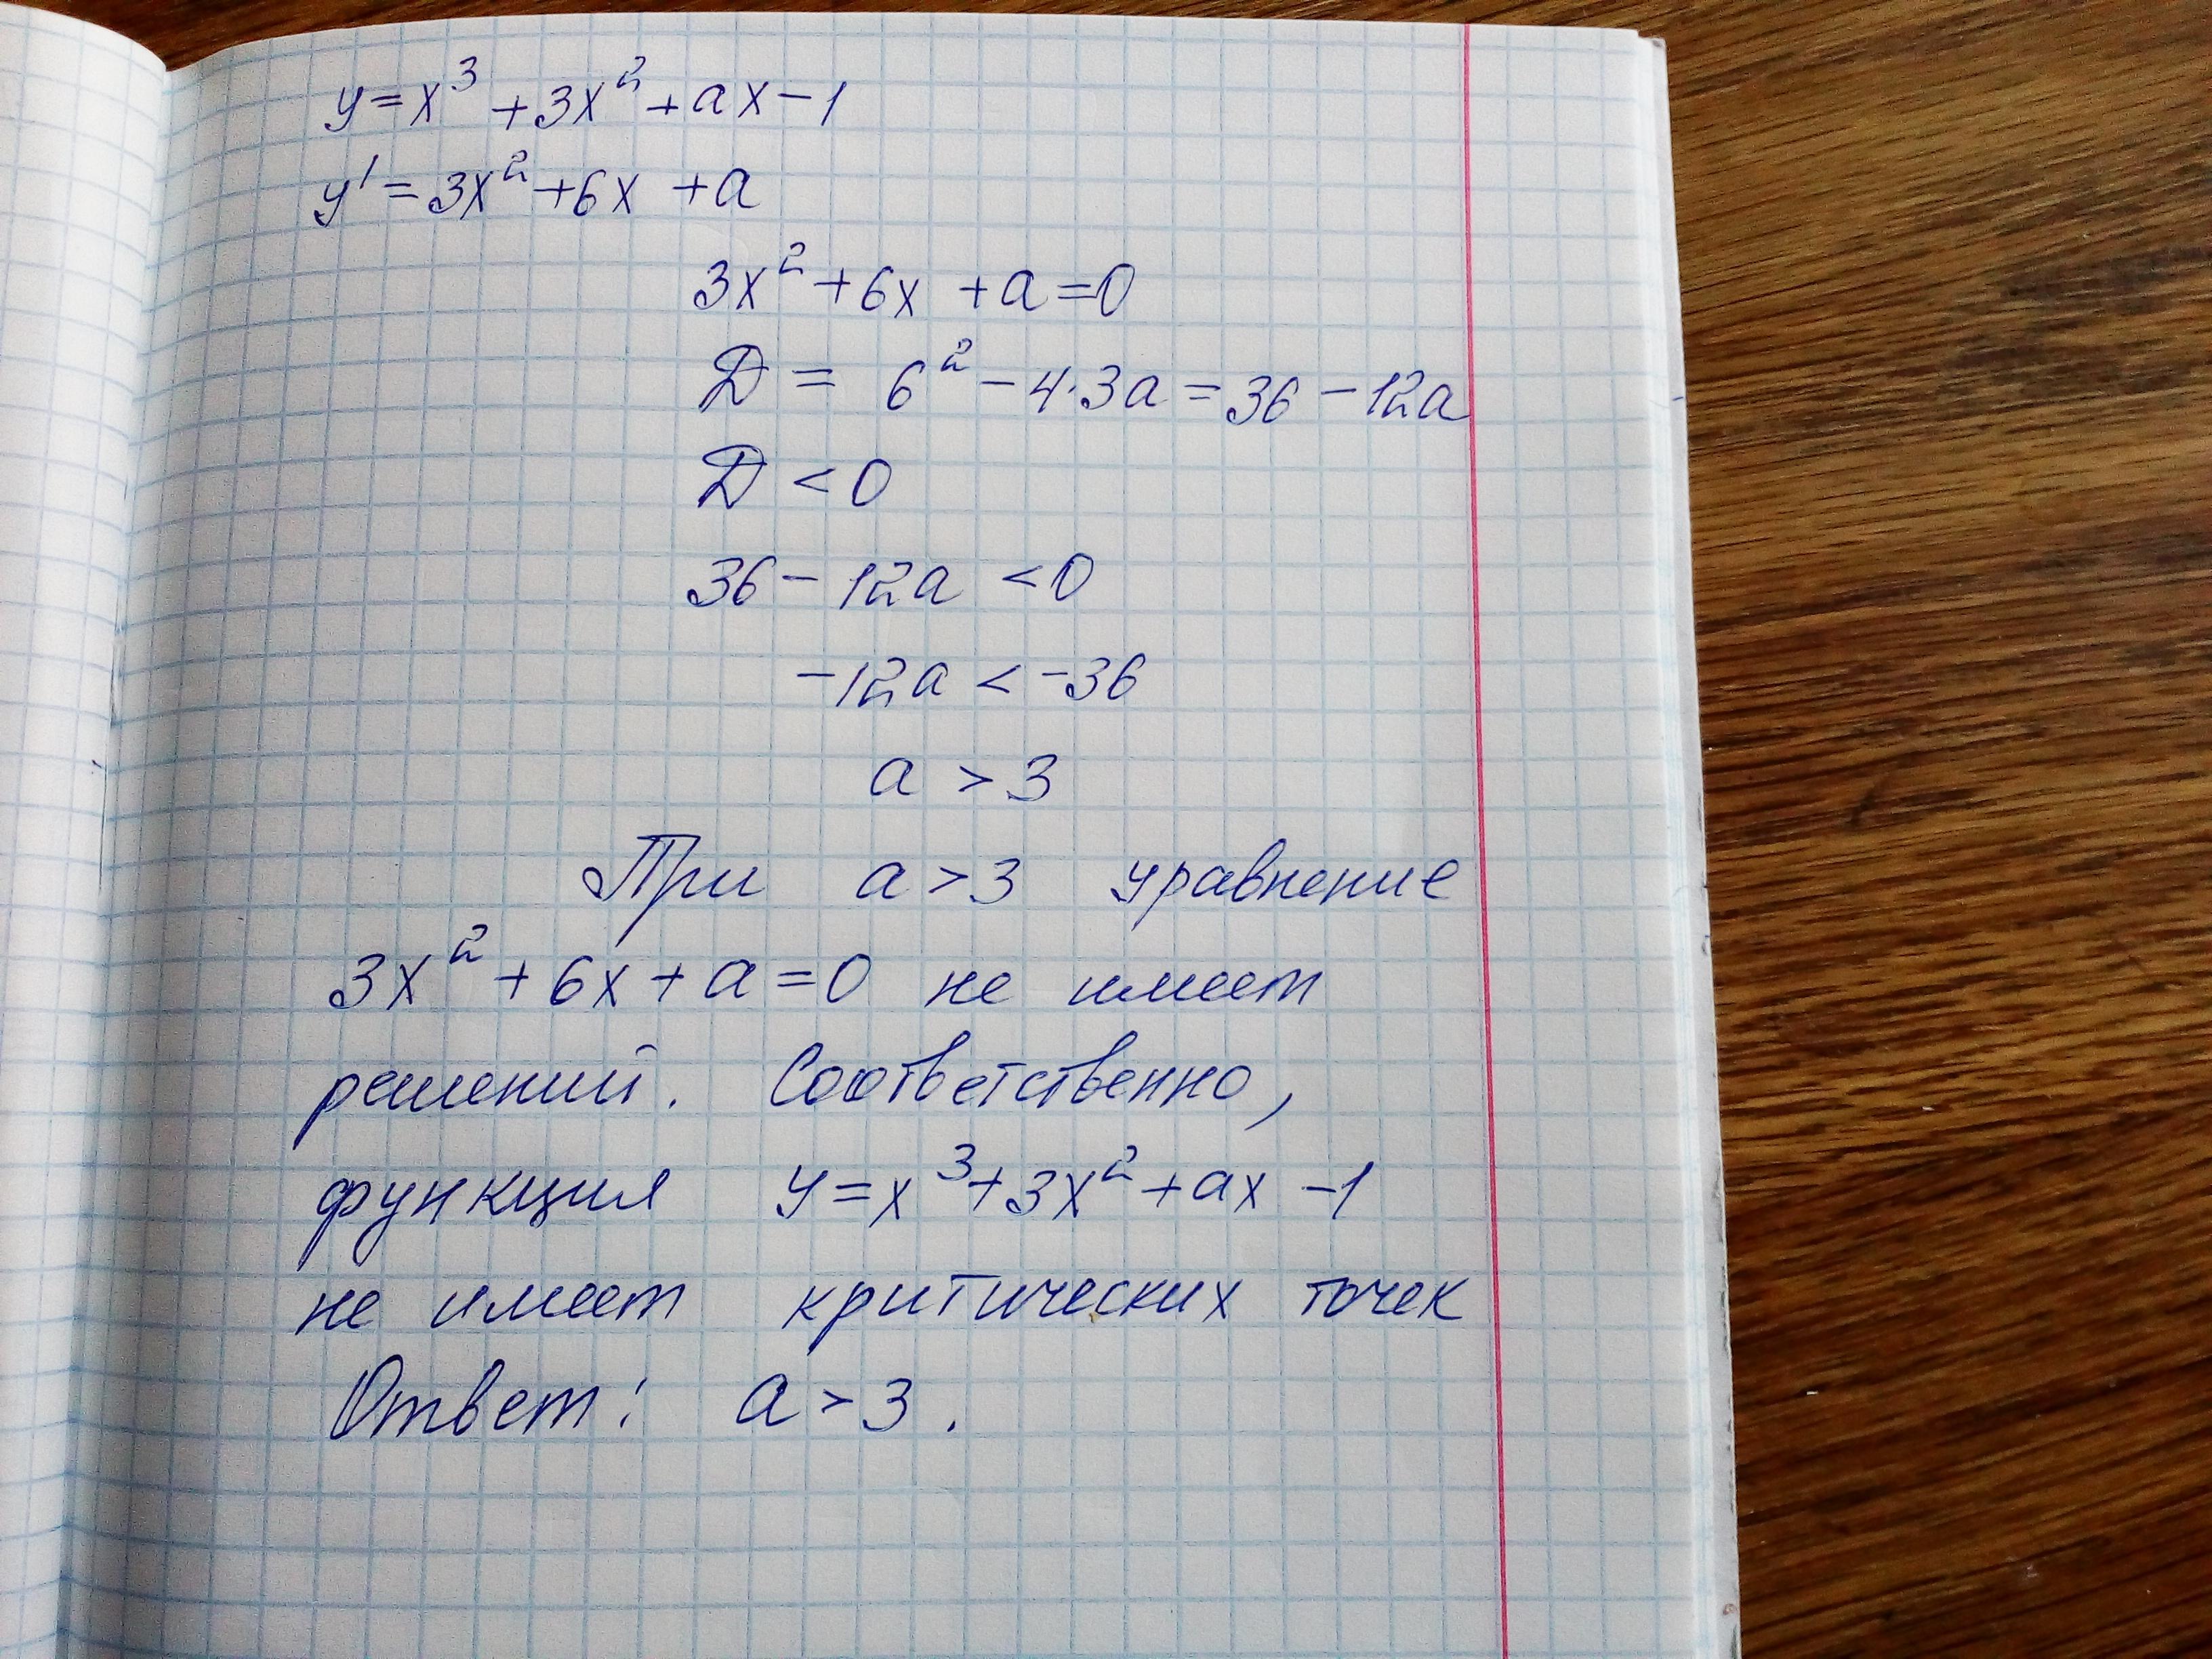 y=x³+3x²+ax-1
y'=3x²+6x+a
3x²+6x+a=0
Д = 6²-4·3a=36-12a
Д<0
36-12a<0
-12a<-36
a>3
При a>3 уравнение
3x²+6x+a=0 не имеет
решений. Соответственно,
функция y=x³+3x²+ax-1
не имеет критических точек
Ответ: a>3.